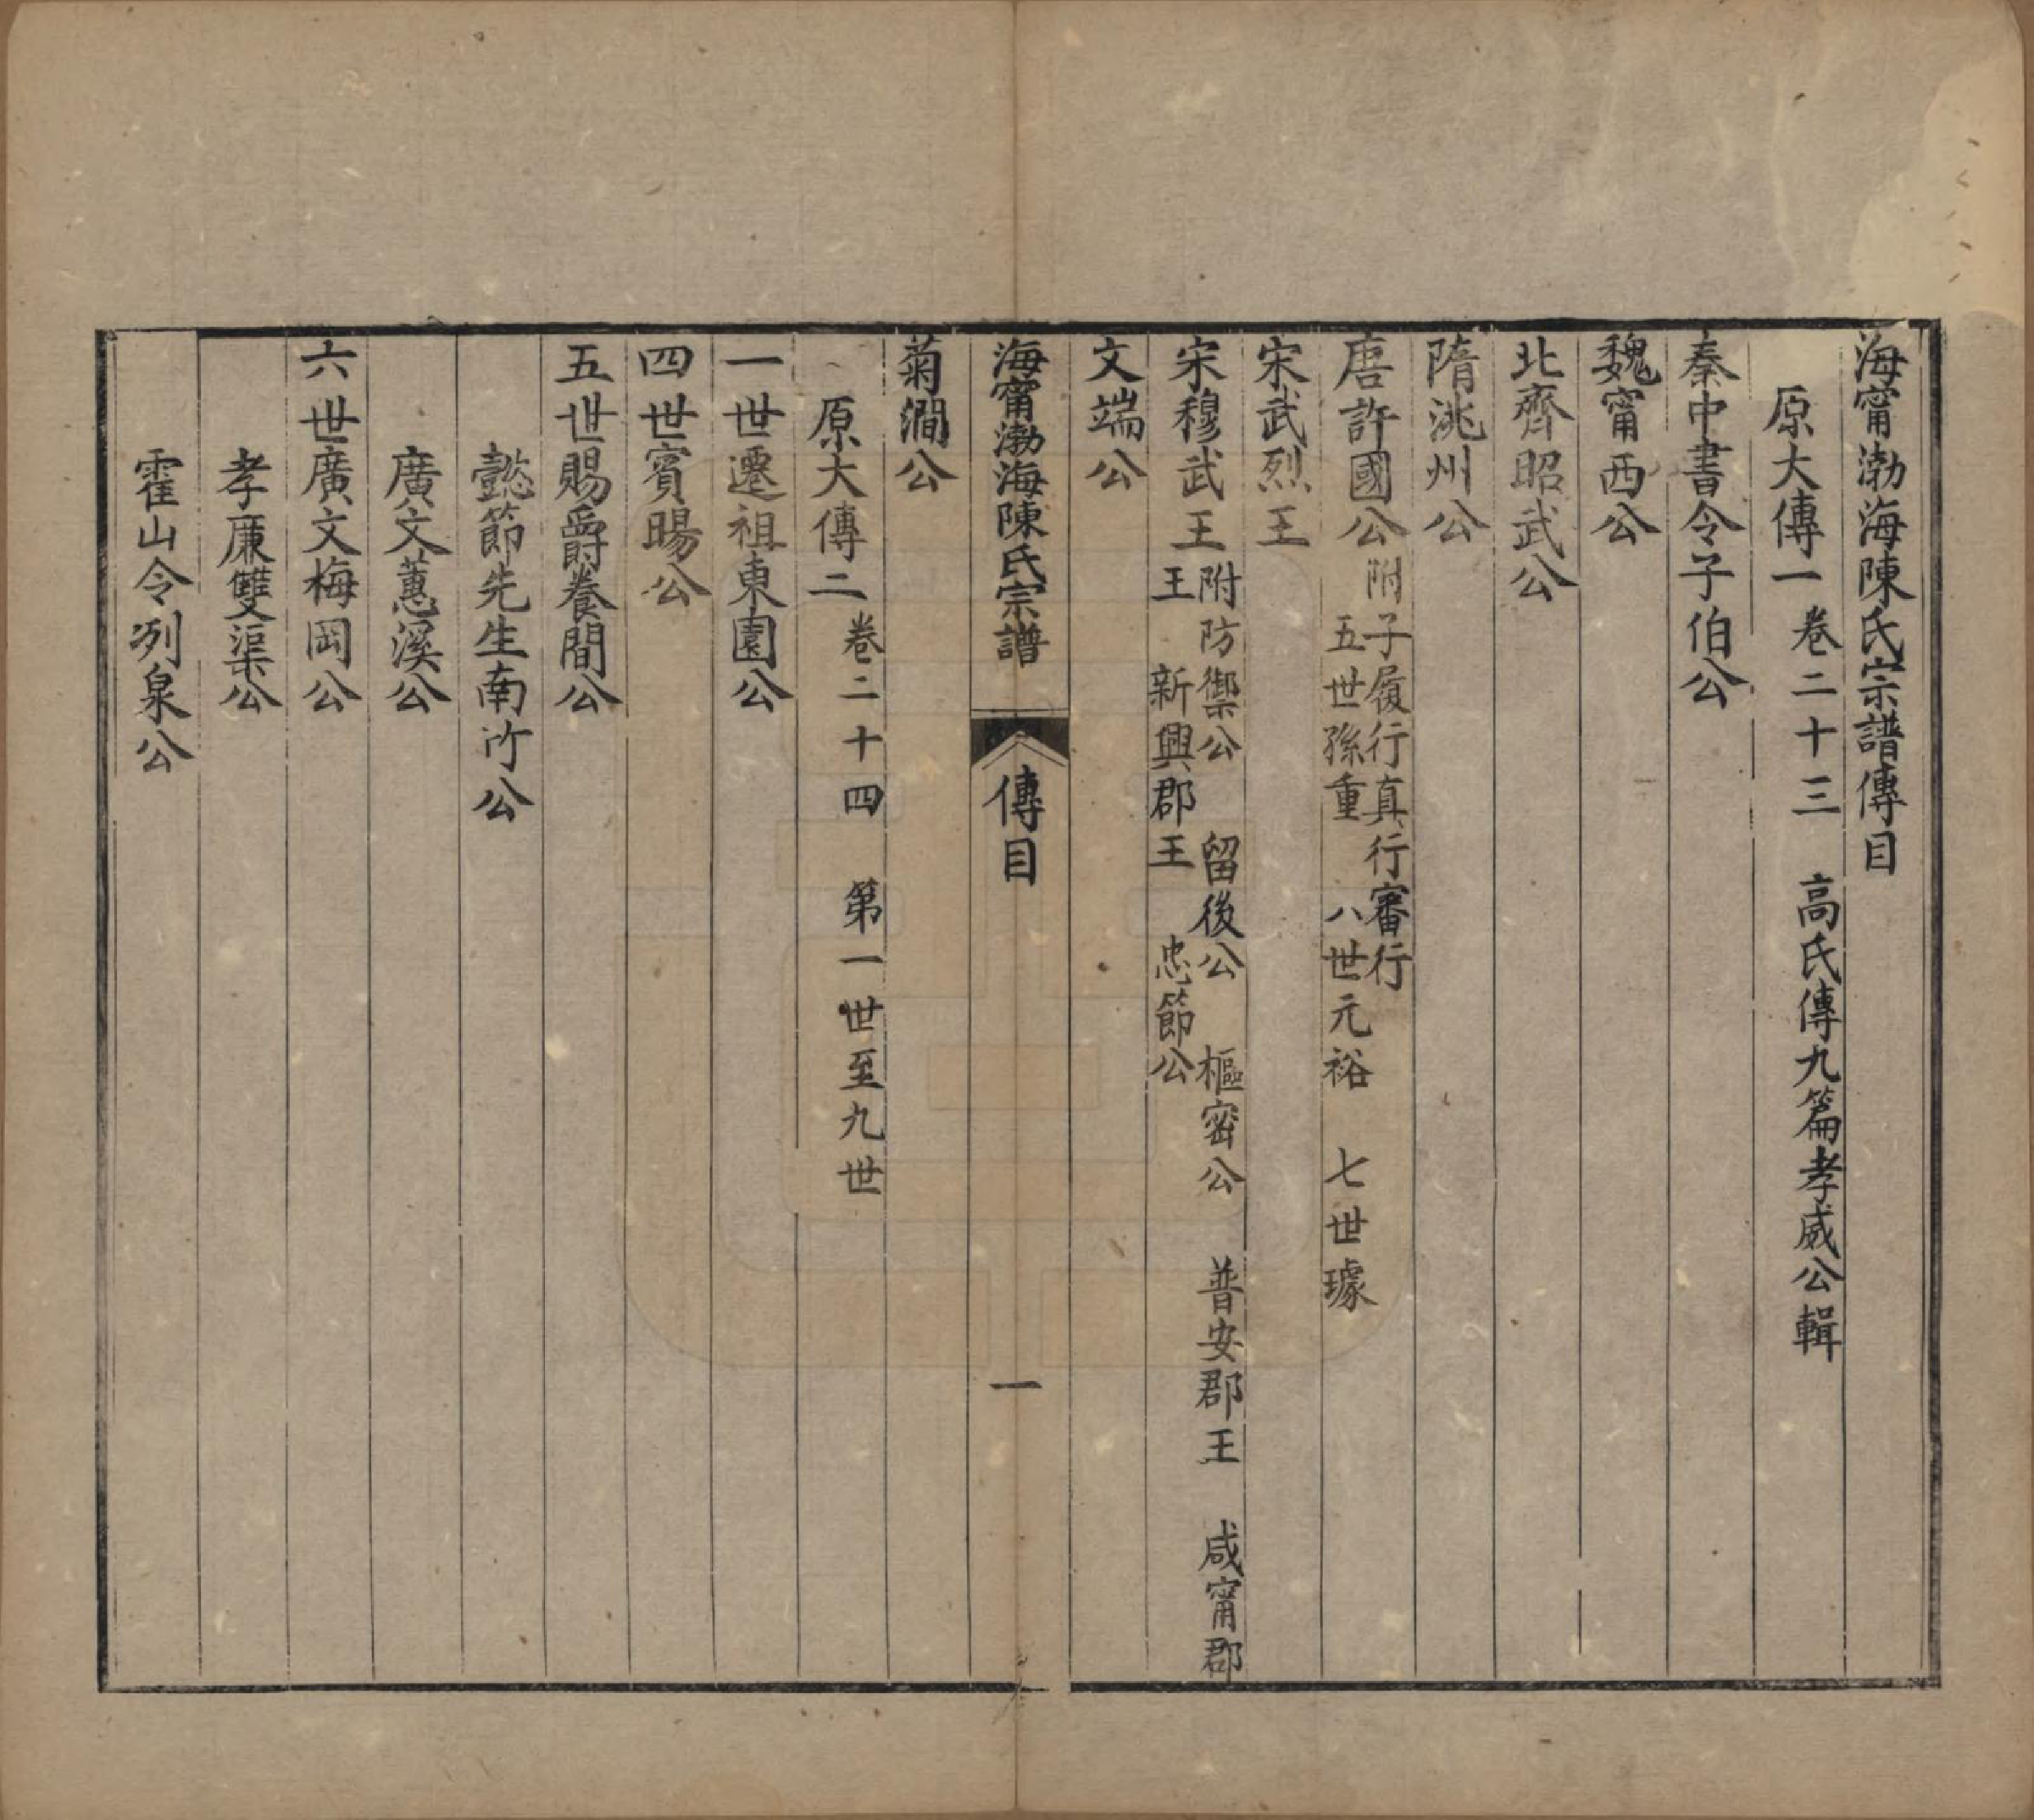 海甯渤海陳氏宗譜傳目
原大傳一 卷二十三 高氏傳九篇孝威公輯
秦中書令子伯公
魏甯西公
北齊昭武公
隋洮州公
唐許國公 附子履行真行審行
五世孫重 八世元裕 七世璩
宋武烈王
宋穆武王 附防禦公 留後公 樞密公 普安郡王 咸甯郡
王 新興郡王 忠節公
文端公
海甯渤海陳氏宗譜 傳目 一
菊澗公
原大傳二 卷二十四 第一世至九世
一世遷祖東園公
四世賓暘公
五世賜爵養間公
懿節先生南竹公
廣文蕙溪公
六世廣文梅岡公
孝廉雙渠公
霍山令冽泉公